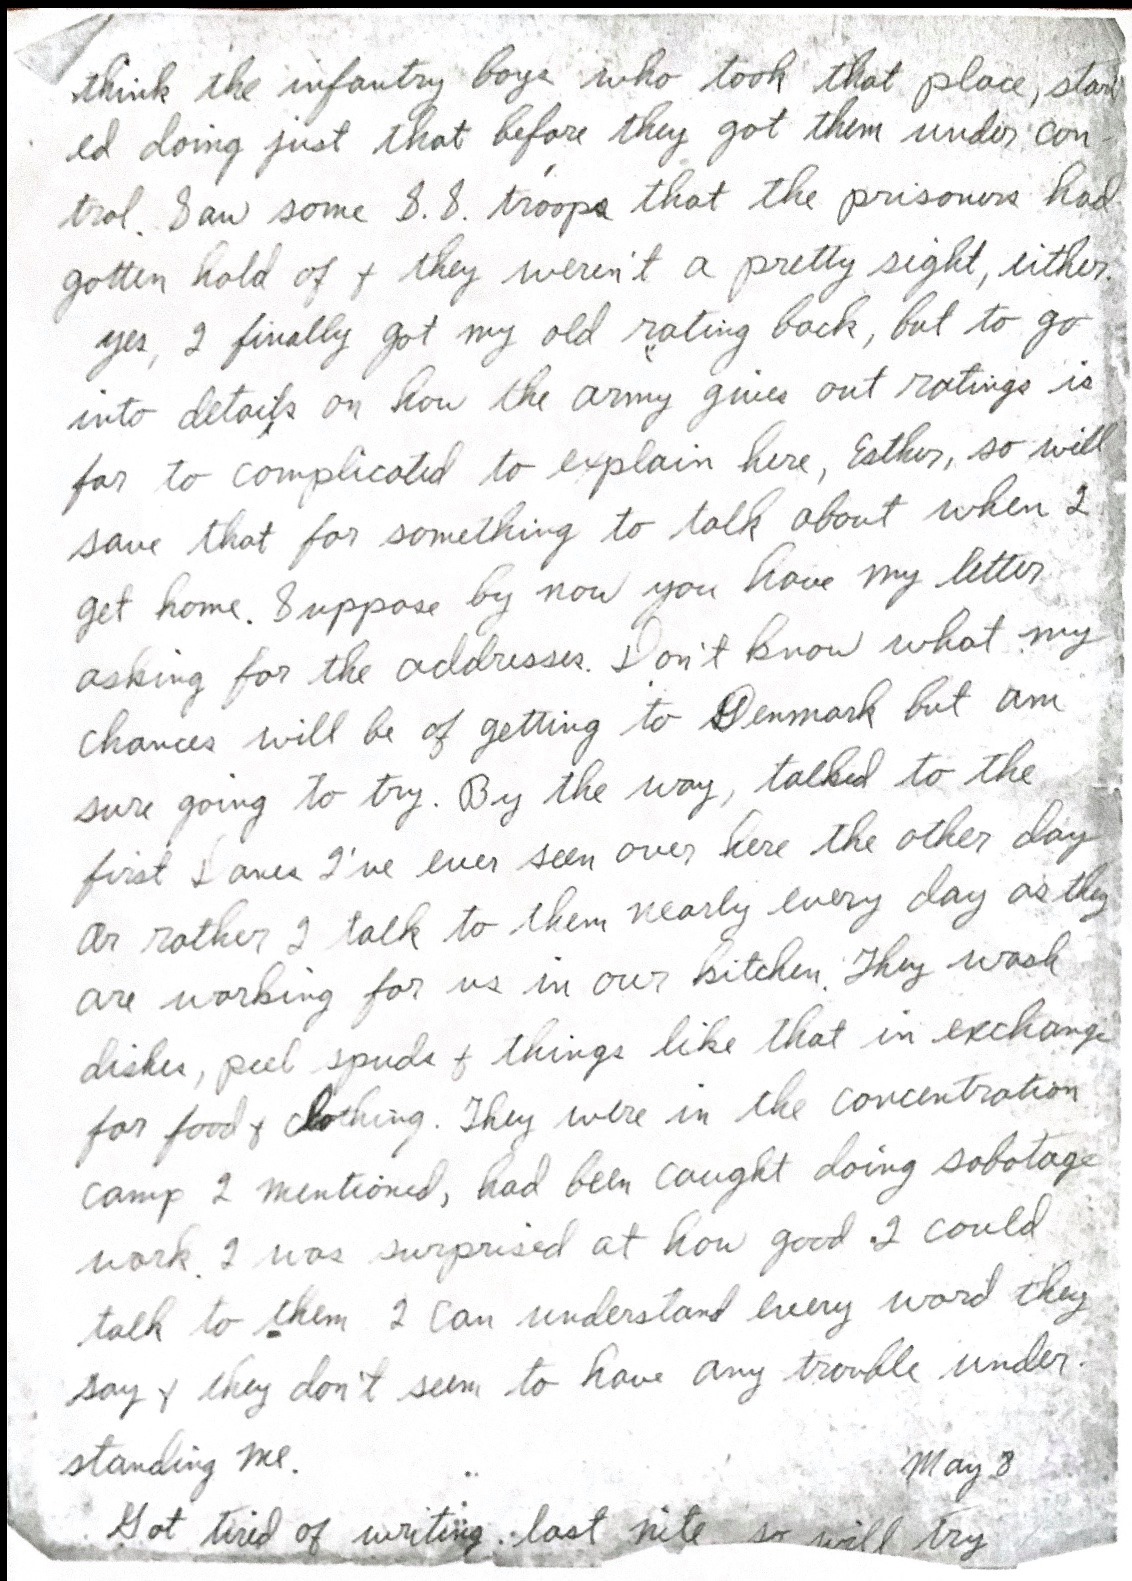 think the infantry boys who took that place, start
ed doing just that before they got them under con-
trol. Saw some S.S. troops that the prisoners had
gotten hold of & they weren't a pretty sight, either.
yes, I finally got my old rating back, but to go
into details on how the army gives out ratings is
far to complicated to explain here, Esther, so will
save that for something to talk about when I
get home. Suppose by now you have my letter
asking for the addresses. Don't know what my
chances will be of getting to Denmark but am
sure going to try. By the way, talked to the
first Danes I've ever seen over here the other day
or rather I talk to them nearly every day as they
are working for us in our kitchen. They wash
dishes, peel spuds & things like that in exchange
for food & clothing. They were in the concentration
camp I mentioned, had been caught doing sabotage
work. I was surprised at how good I could
talk to them I can understand every word they
say & they don't seem to have any trouble under-
standing me.
May 8
Got tired of writing last nite so will try